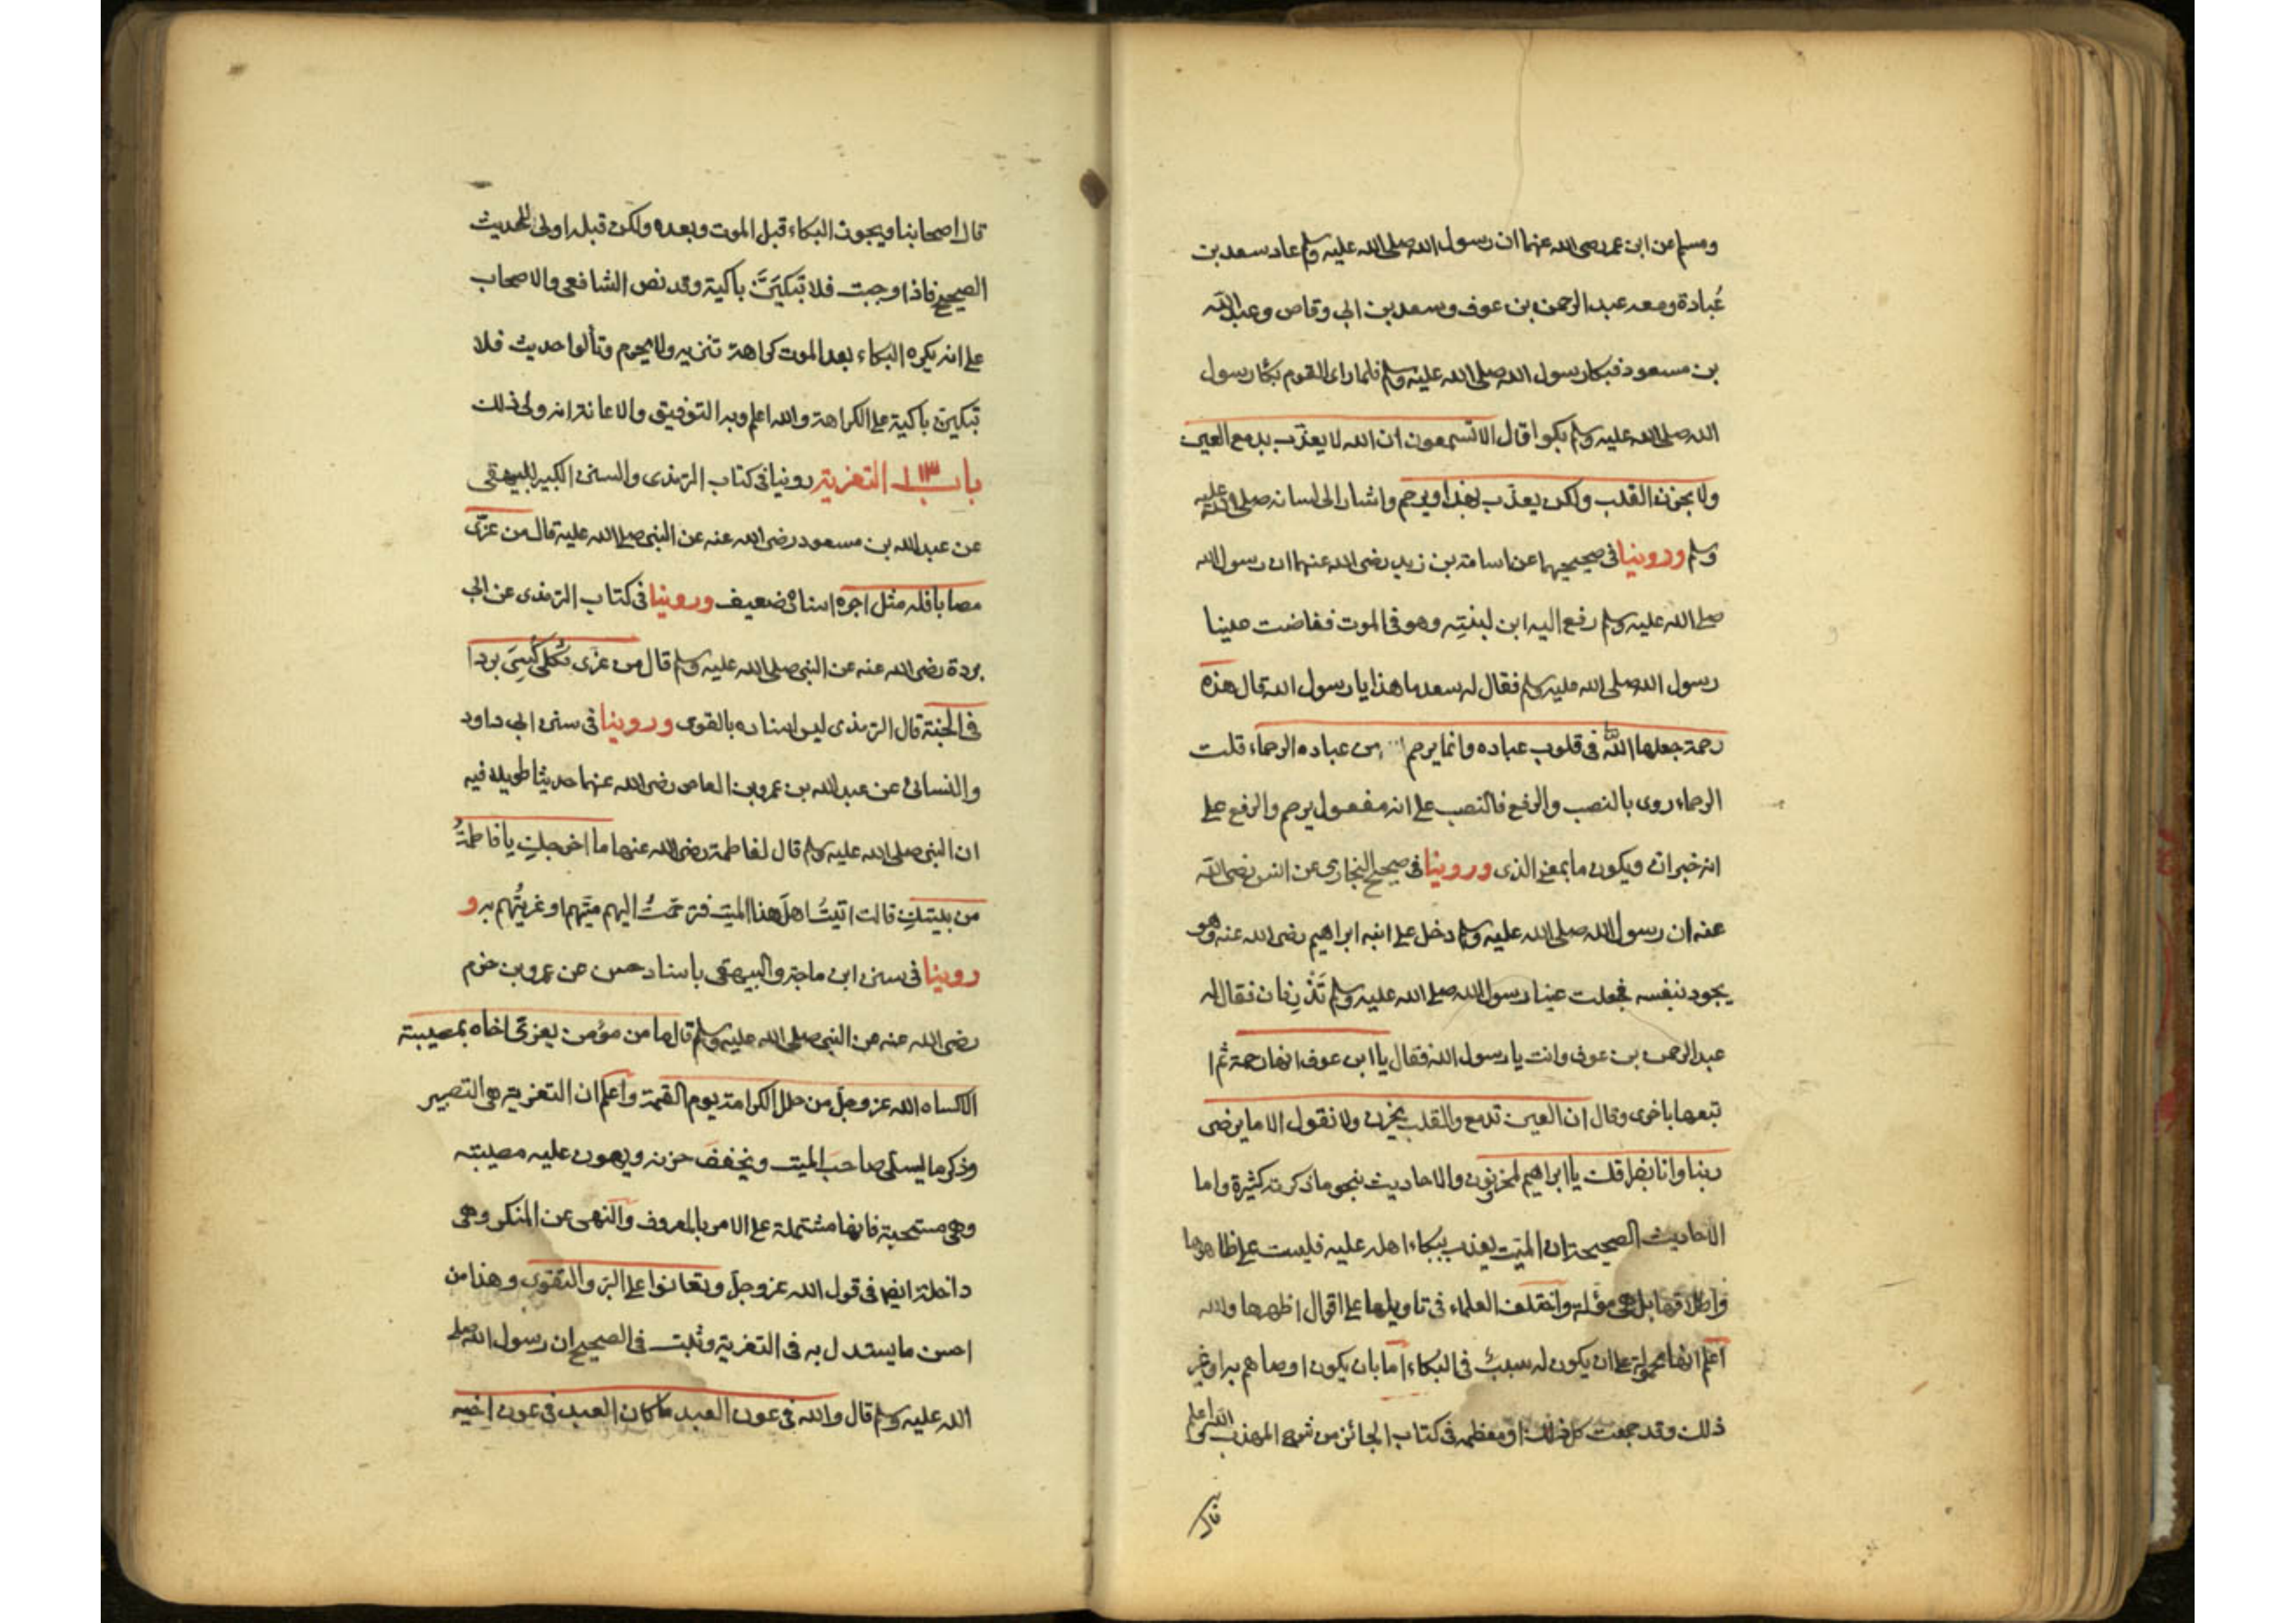 ومسلم عن ابن عمر رضى الله عنهما ان رسول الله صلى الله عليه وسلم عاد سعد بن
عُبادة ومعه عبد الرحمن بن عوف وسعد بن ابى وقاص وعبد الله
بن مسعود فبكا رسول الله صلى الله عليه وسلم فلما راى القوم بكاء رسول
الله صلى الله عليه وسلم بكوا قال الا تسمعون ان الله لا يعذب بدمع العين
ولا بحزن القلب ولكن يعذب بهذا او يرحم واشار الى لسانه صلى الله عليه
وسلم وروينا فى صحيحيهما عن اسامة بن زيد رضى الله عنهما ان رسول الله
صلى الله عليه وسلم رفع اليه ابن لبنتِه وهو فى الموت ففاضت عينا
رسول الله صلى الله عليه وسلم فقال له سعد ما هذا يا رسول الله قال هذه
رحمة جعلها اللّٰه فى قلوب عباده وانما يرحم من عباده الرحماء قلت
الرحماء روى بالنصب والرفع فالنصب على انه مفعول يرحم والرفع على
انه خبر ان ويكون ما بمعنى الذى وروينا فى صحيح البخارى عن انس رضى الله
عنه ان رسول الله صلى الله عليه وسلم دخل على ابنه ابراهيم رضى الله عنه وهو
يجود بنفسه فجعلت عينا رسول الله صلى الله عليه وسلم تَذْرِفان فقال له
عبد الرحمن بن عوف وانت يا رسول الله فقال يا ابن عوف انها رحمة ثم ا
تبعها باخرى وقال ان العين تدمع والقلب يحزن ولا نقول الا ما يرضى
ربنا وانا بفراقك يا ابراهيم لمحزونون والاحاديث بنحو ما ذكرته كثيرة واما
الاحاديث الصحيحة ان الميت يعذب ببكاء اهله عليه فليست على ظاهرها
واطلاقها بل هى مؤلة واختلف العلماء فى تاويلها على اقوال اظهرها والله
اعلم انها محمولة على ان يكون له سبب فى البكاء اما بان يكون اوصاهم به او غير
ذلك وقد جمعت كل ذلك او معظمه فى كتاب الجنائز من شرح المهذب والله اعلم
قال
قال اصحابنا ويجوز البكاء قبل الموت وبعده ولكن قبله اولى للحديث
الصحيح فاذا وجبت فلا تبكيَنَّ باكية وقد نص الشافعى والاصحاب
على انه يكره البكاء بعد الموت كراهة تنزيه ولا يحرم وتألوا حديث فلا
تبكين باكية على الكراهة والله اعلم وبه التوفيق والاعانة انه ولى ذلك
باب ١٣ التعزية روينا فى كتاب الترمذى والسنن الكبير للبيهقى
عن عبد الله بن مسعود رضى الله عنه عن النبى صلى الله عليه قال من عزّى
مصابا فله مثل اجره اسناده ضعيف وروينا فى كتاب الترمذى عن ابى
بردة رضى الله عنه عن النبى صلى الله عليه وسلم قال من عزى ثكلى كُسِىَ بردا
فى الجنة قال الترمذى ليس اسناده بالقوى وروينا فى سنن ابى داود
والنسائى عن عبد الله بن عمرو بن العاص رضى الله عنهما حديثا طويلا فيه
ان النبى صلى الله عليه وسلم قال لفاطمة رضى الله عنها ما اخرجكِ يا فاطمةُ
من بيتكِ قالت اتيتُ اهلَ هذا الميت فترحمتُ اليهم ميّتهم او عزيتُهم به و
روينا فى سنن ابن ماجة والبيهقى باسناد حسن عن عمرو بن حزم
رضى الله عنه عن النبى صلى الله عليه وسلم قال ما من مؤمن يعزى اخاه بمصيبة
الا كساه الله عز وجل من حلل الكرامة يوم القيمة واعلم ان التعزية هى التصبير
وذكر ما يسلى صاحب الميت ويخفف حزنه ويهون عليه مصيبته
وهى مستحبة فانها مشتملة على الامر بالمعروف والنهى عن المنكر وهى
داخلة ايضا فى قول الله عز وجل وتعانوا على البر والتقوى وهذا من
احسن ما يستدل به فى التعزية وثبت فى الصحيح ان رسول الله صلى
الله عليه وسلم قال والله فى عون العبد ما كان العبد فى عون اخيه